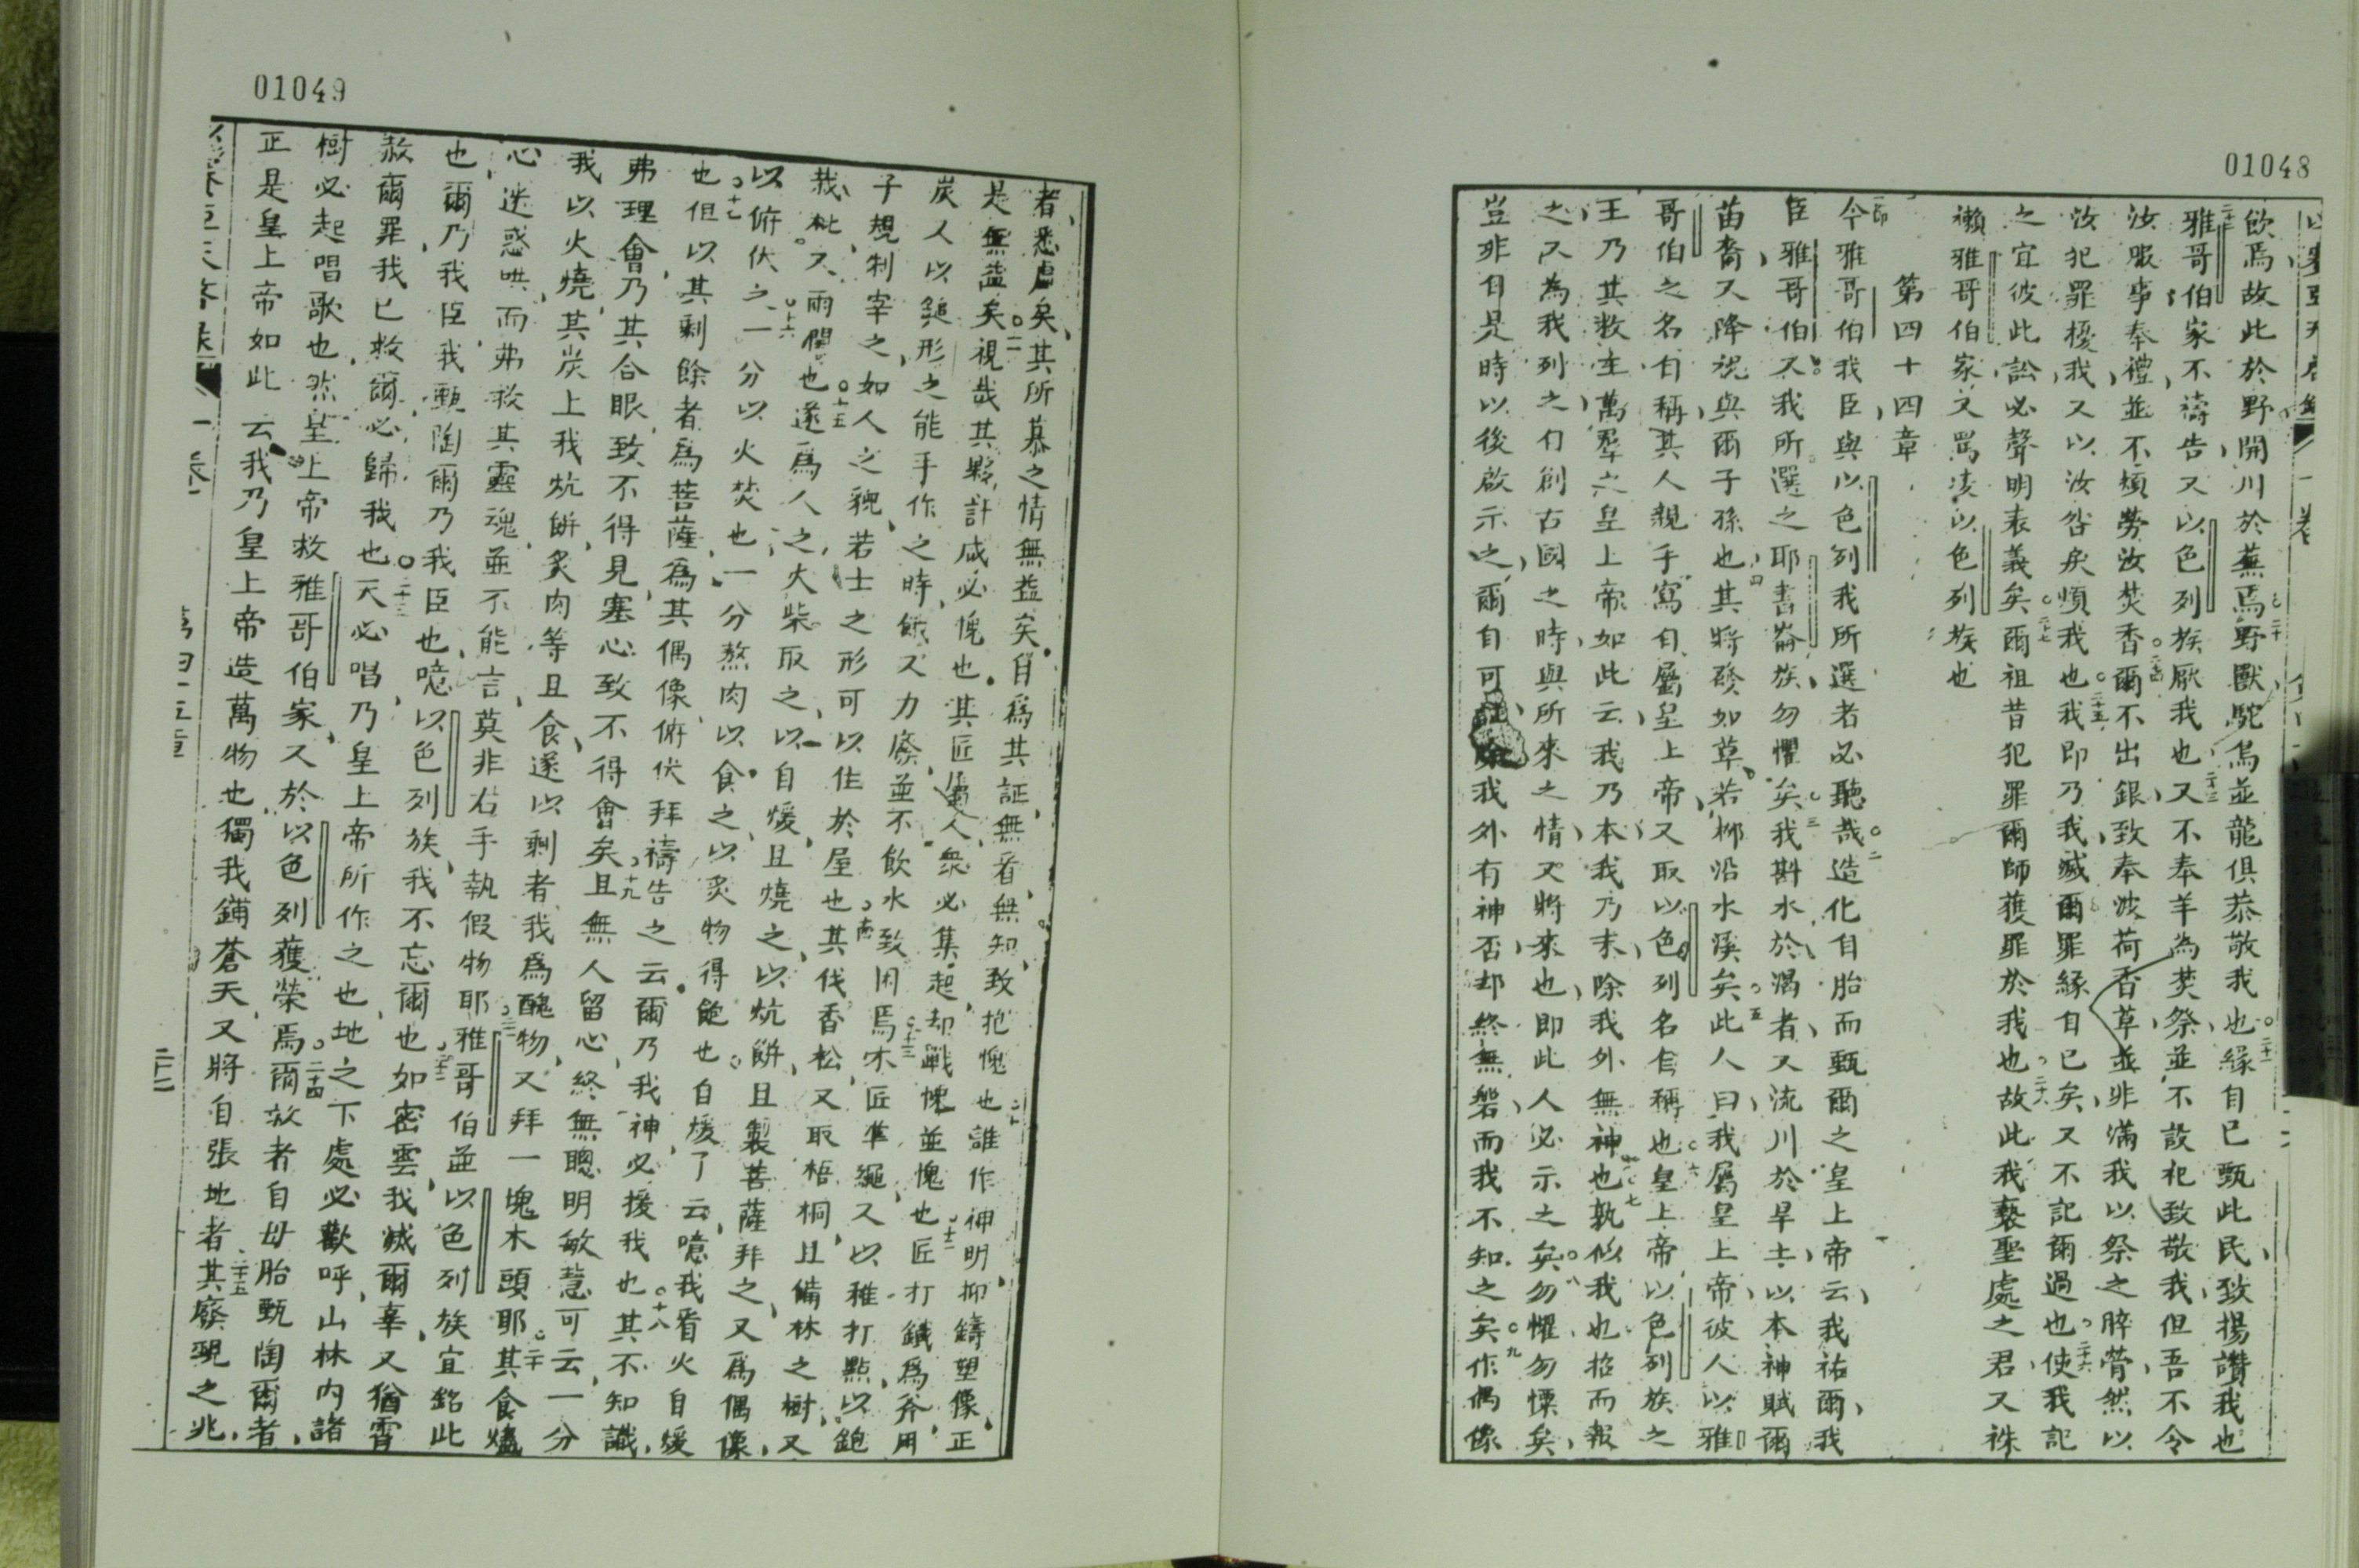 01048
飲焉故此於野開川於蕪焉野獸駝鳥並龍俱恭敬我也緣自已甄此民致揚讚我也
雅哥伯家不禱告又以色列族厭我也又不奉羊為焚祭並不設祀致敬我但吾不令
汝服事奉禮並不煩勞汝焚香爾不出銀致奉波荷香草並非滿我以祭之脺膋然以
汝犯罪擾我又以汝咎戾煩我也我即乃我滅爾罪緣自已矣又不記爾過也使我記
之宜彼此訟必聲明表義矣爾祖昔犯罪爾師獲罪於我也故此我褻聖處之君又祩
襰雅哥伯家又罵凌以色列族也
第四十四章
今雅哥伯我臣與以色列我所選者必聽哉造化自胎而甄爾之皇上帝云我祐爾我
臣雅哥伯又我所選之耶書崙族勿懼矣我斟水於渴者又流川於旱土以本神賦爾
苗裔又降祝與爾子孫也其將發如草若柳沿水溪矣此人曰我屬皇上帝彼人以雅
哥伯之名自稱其人親手寫自屬皇上帝又取以色列名自稱也皇上帝以色列族之
王乃其救主萬羣之皇上帝如此云我乃本我乃末除我外無神也孰似我也招而報
之又為我列之自創古國之時與所來之情又將來也即此人必示之矣勿懼勿慄矣
豈非自是時以後啟示之爾自可証除我外有神否却終無磐而我不知之矣作偶像
01049
者悉虛矣其所慕之情無益矣自爲其証無看無知致抱愧也誰作神明抑鑄塑像正
是無益矣視哉其夥計咸必愧也其匠屬人衆必集起却戰慄並愧也匠打鐵爲斧用
炭人以鎚形之能手作之時餓又力廢並不飲水致困焉木匠準繩又以稚打點以鉋
子規制宰之如人之貌若士之形可以住於屋也其伐香松又取梧桐且備林之樹又
栽杉又雨潤也遂爲人之火柴取之以自煖且燒之以炕餅且製菩薩拜之又爲偶像
以俯伏之一分以火焚也一分熬肉以食之以炙物得飽也自煖了云噫我看火自煖
也但以其剩餘者爲菩薩爲其偶像俯伏拜禱告之云爾乃我神必援我也其不知識
弗理會乃其合眼致不得見塞心致不得會矣且無人留心終無聰明敏慧可云一分
我以火燒其炭上我炕餅炙肉等且食遂以剩者我爲醜物又拜一塊木頭耶其食燼
心迷惑哄而弗救其靈魂並不能言莫非右手執假物耶雅哥伯並以色列族宜銘此
也爾乃我臣我甄陶爾乃我臣也噫以色列族我不忘爾也如密雲我滅爾辜又猶霄
赦爾罪我已救爾必歸我也天必唱乃皇上帝所作之也地之下處必歡呼山林內諸
樹必起唱歌也然皇上帝救雅哥伯家又於以色列獲榮焉爾救者自母胎甄陶爾者
正是皇上帝如此云我乃皇上帝造萬物也獨我鋪蒼天又將自張地者其廢覡之兆